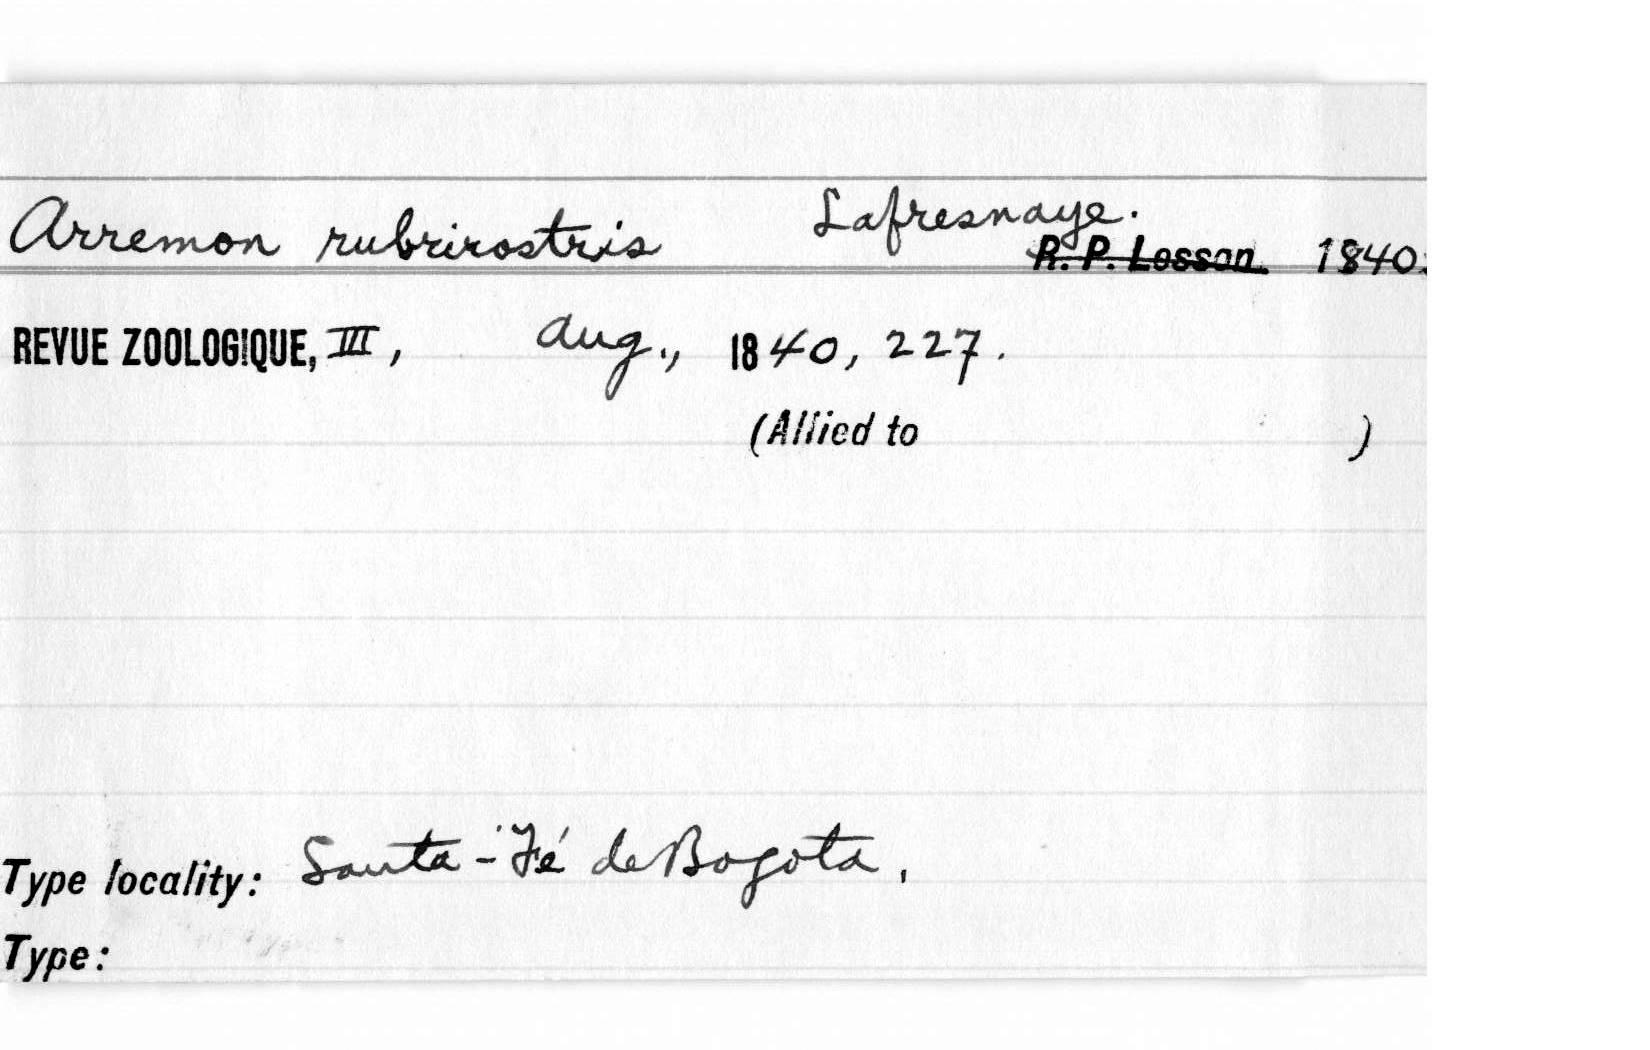 Arremon rubrirostris Lafresnaye.
R. P. Lesson. 1840.
REVUE ZOOLOGIQUE, III, Aug., 1840, 227.
(Allied to )
Type locality: Santa-Fé de Bogota.
Type: